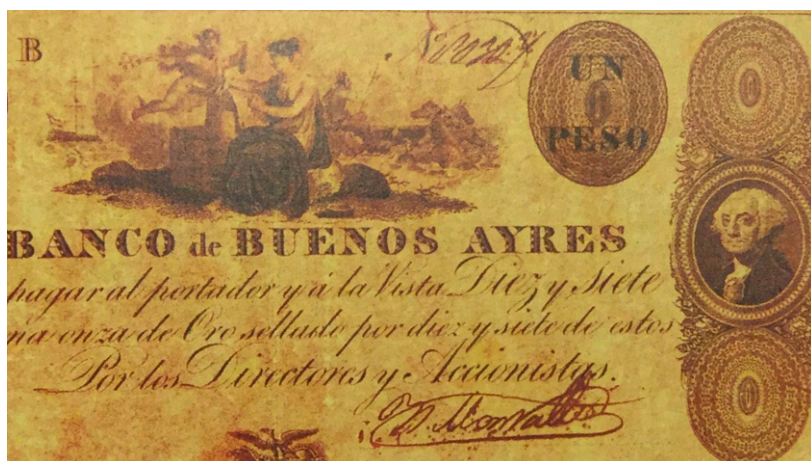 B
UN
PESO
BANCO de BUENOS AYRES
pagar al portador y á la Vista Diez y siete
na onza de Oro sellado por diez y siete de estos
Por los Directores y Accionistas.